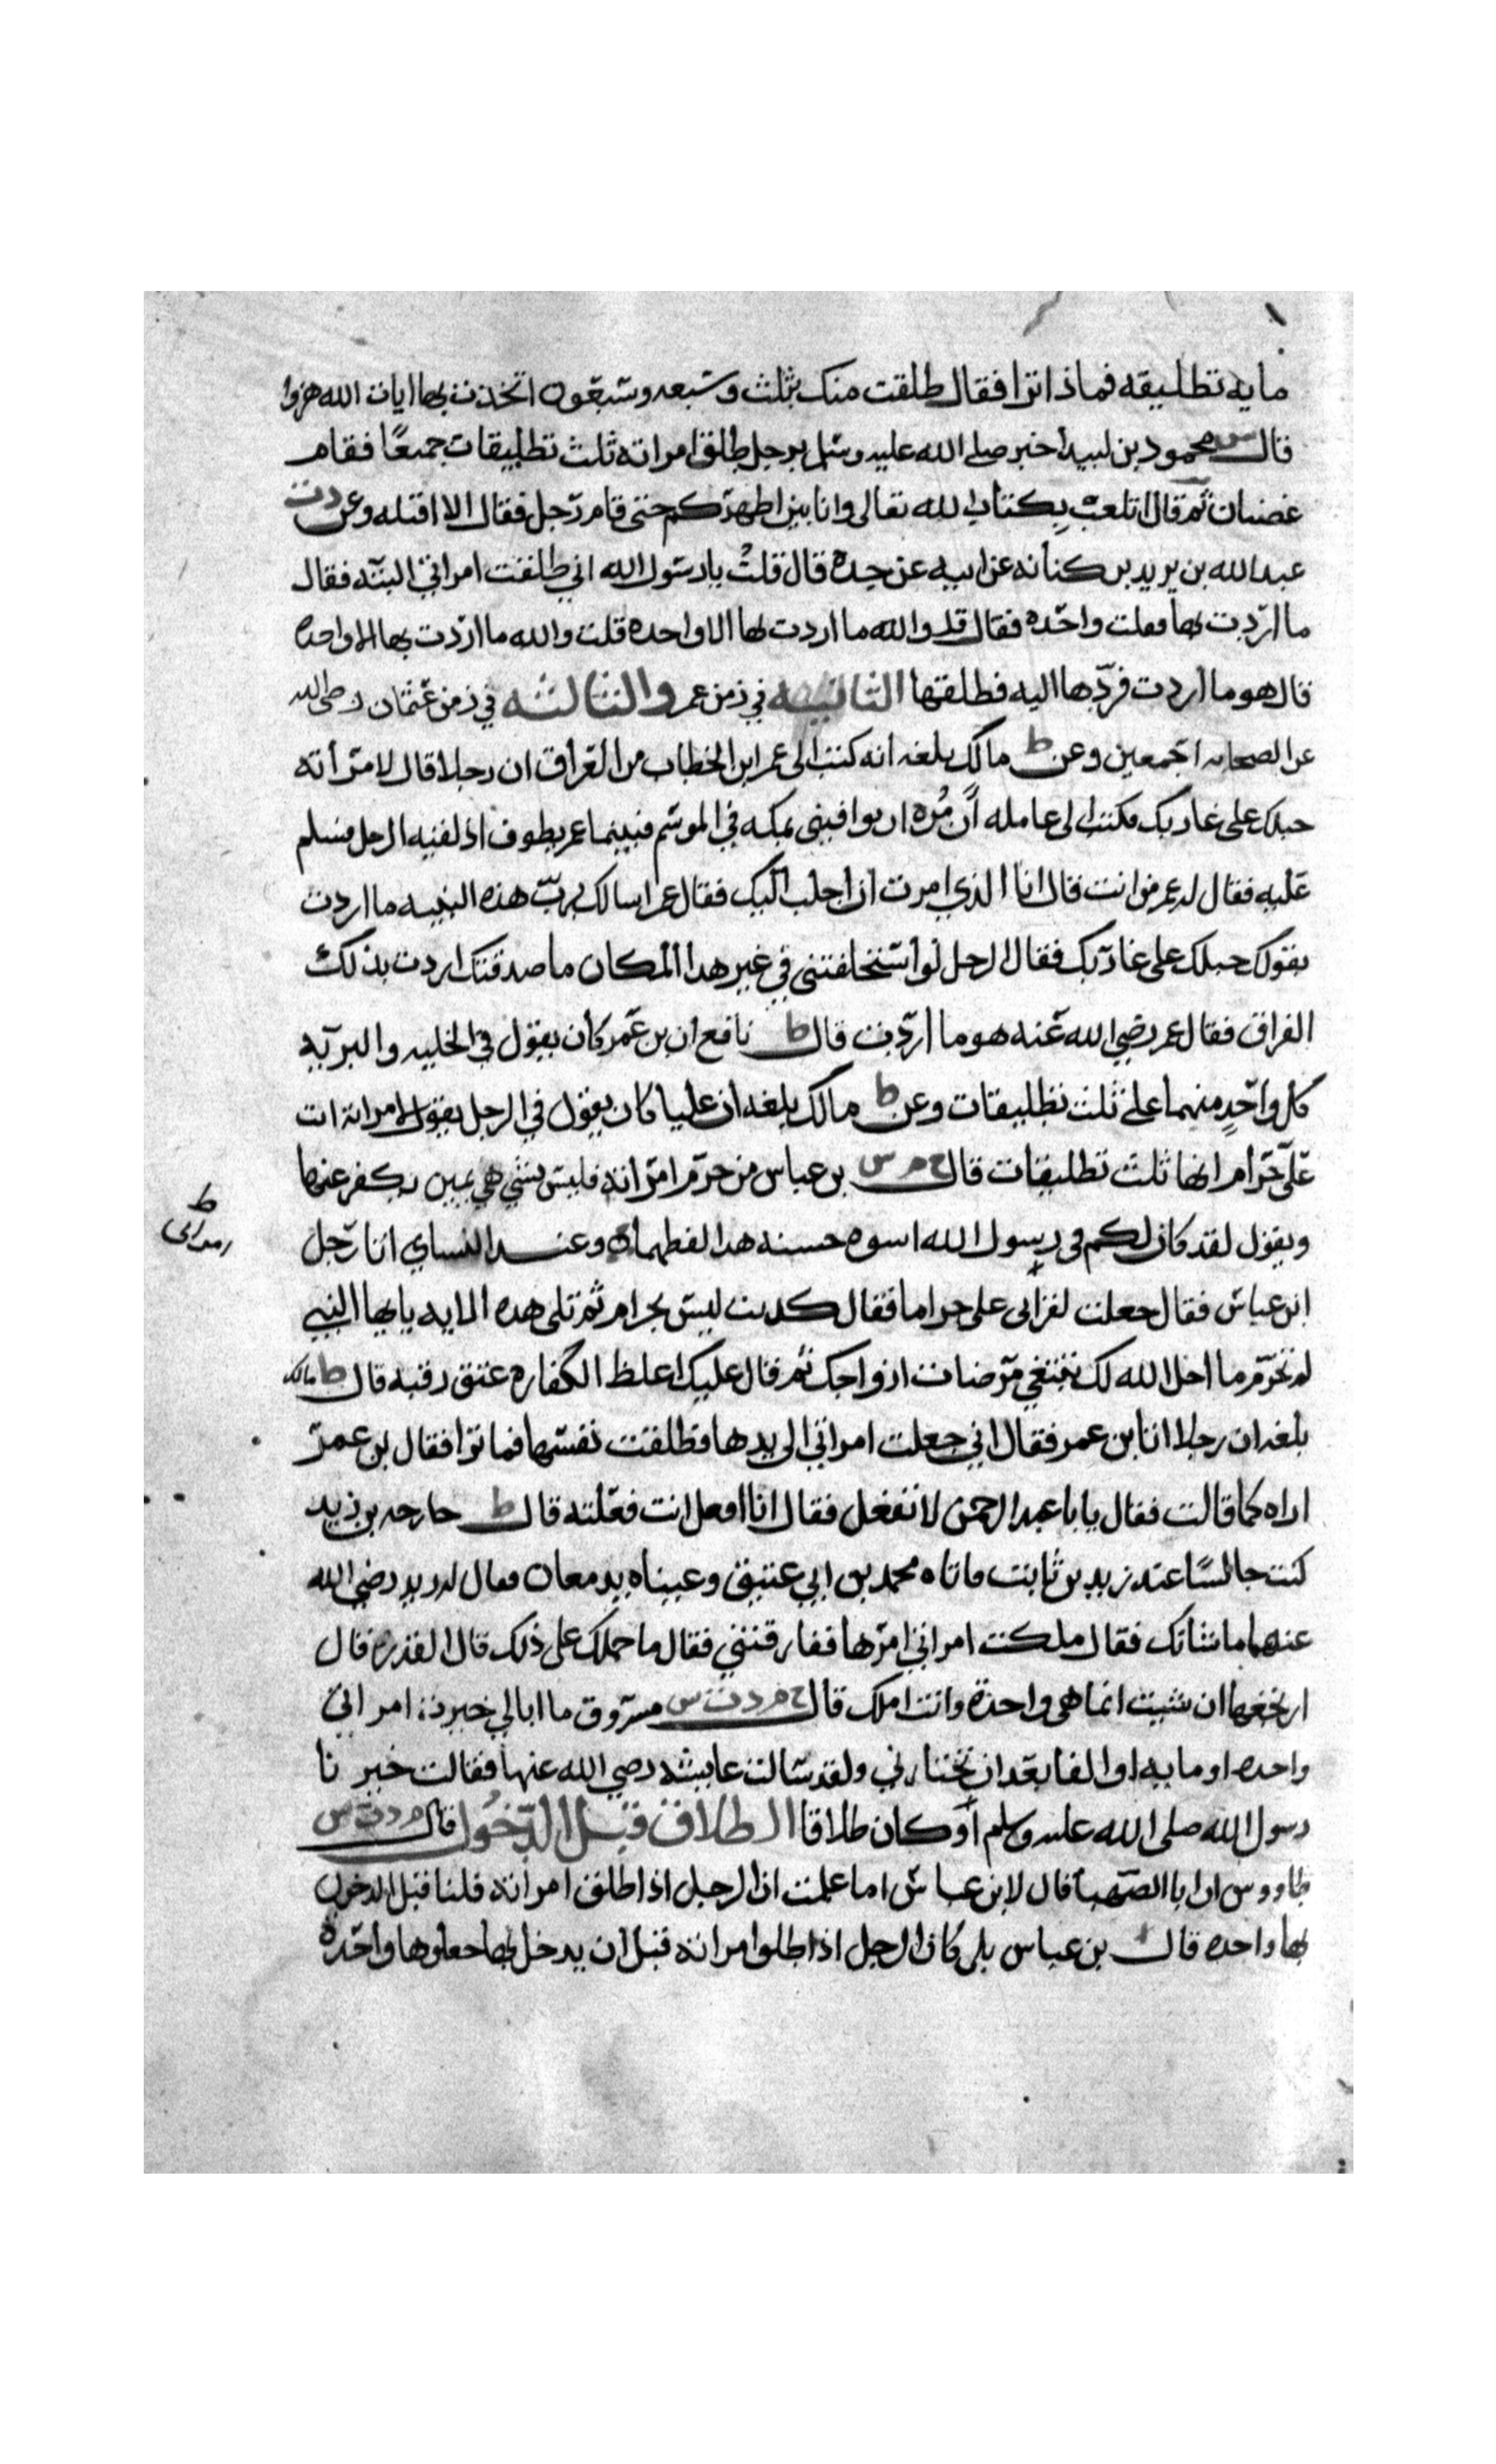 مايه تطليقه فماذا ترا فقال طلقت منك بثلث وسبعه وتسعون اتخذت بها ايات الله هزوا
قال س محمود بن لبيد اخبر صلى الله عليه وسلم برجل طلق امراته ثلث تطليقات جميعًا فقام
غضبان ثم قال اتلعب بكتاب الله تعالى وانا بين اظهركم حتى قام رجل فقال الا اقتله وعن د ت
عبد الله بن يزيد بن كنانه عن ابيه عن جده قال قلت يا رسول الله اني طلقت امراتي البته فقال
ما اردت بها فعلت واحده فقال قلـ والله ما اردت بها الا واحده قلت والله ما اردت بها الا واحده
قال هو ما اردت فردها اليه فطلقها الثانيه في زمن عمر والثالثه في زمن عثمان رضى الله
عن الصحابه اجمعين وعن ط مالك بلغه انه كتب الى عمر ابن الخطاب من العراق ان رجلا قال لامراته
حبلك على غاربك فكتب الى عامله أن مُره ان يوافيني بمكه في الموسم فبينما عمر يطوف اذ لقيه الرجل فسلم
عليه فقال له عمر من انت قال انا الذي امرت ان اجلب اليك فقال عمر اسالك برب هذه البنيه ما اردت
بقولك حبلك على غاربك فقال الرجل لو استحلفتني في غير هدا المكان ما صدقتك اردت بذلك
الفراق فقال عمر رضي الله عنه هو ما اردت قال ط نافع ان بن عمر كان يقول في الخليه والبريه
كل واحدٍ منهما على ثلث تطليقات وعن ط مالك بلغه ان عليا كان يقول في الرجل يقول لامراته انت
علىّ حرام انها ثلث تطليقات قال خ م س بن عباس من حرم امراته فليس بشي هي يمين يكفر عنها
ويقول لقد كان لكم في رسول الله اسوه حسنه هدا لفظهما وعند النساي اتا رجل
ابن عباس فقال جعلت امراتى على حراما فقال كدبت ليس بحرام ثم تلى هده الايه يايها النبي
لم تحرم ما احل الله لك تبتغي مرضات ازواجك ثم قال عليك اغلظ الكفاره عتق رقبه قال ط مالك
بلغه ان رجلا اتا بن عمر فقال اني جعلت امراتي الى يدها فطلقت نفسها فما ترا فقال بن عمر
اراه كما قالت فقال يا با عبد الرحمن لا تفعل فقال انا افعل انت فعلته قال ط خارجه بن زيد
كنت جالسًا عند زيد بن ثابت فاتاه محمد بن ابي عتيق وعيناه يدمعان فقال له زيد رضي الله
عنهما ما شانك فقال ملكت امراتي امرها ففارقتني فقال ما حملك على ذلك قال القدر قال
ارتجعها ان شيت انما هى واحدة وانت املك قال خ م د ت س مسروق ما ابالي خيرت امراتي
واحده او مايه او الفا بعد ان تختارني ولقد سالت عايشه رضي الله عنها فقالت خيرنا
رسول الله صلى الله عليه وسلم أو كان طلاقا الطلاق قبل الدخول قال م د ت س
طاووس ان ابا الصهبا قال لابن عباس اما علمت ان الرجل اذا طلق امراته ثلثا قبل الدخول
بها واحده قال بن عباس بلى كان الرجل اذا طلق امراته قبل ان يدخل بها جعلوها واحده
ط